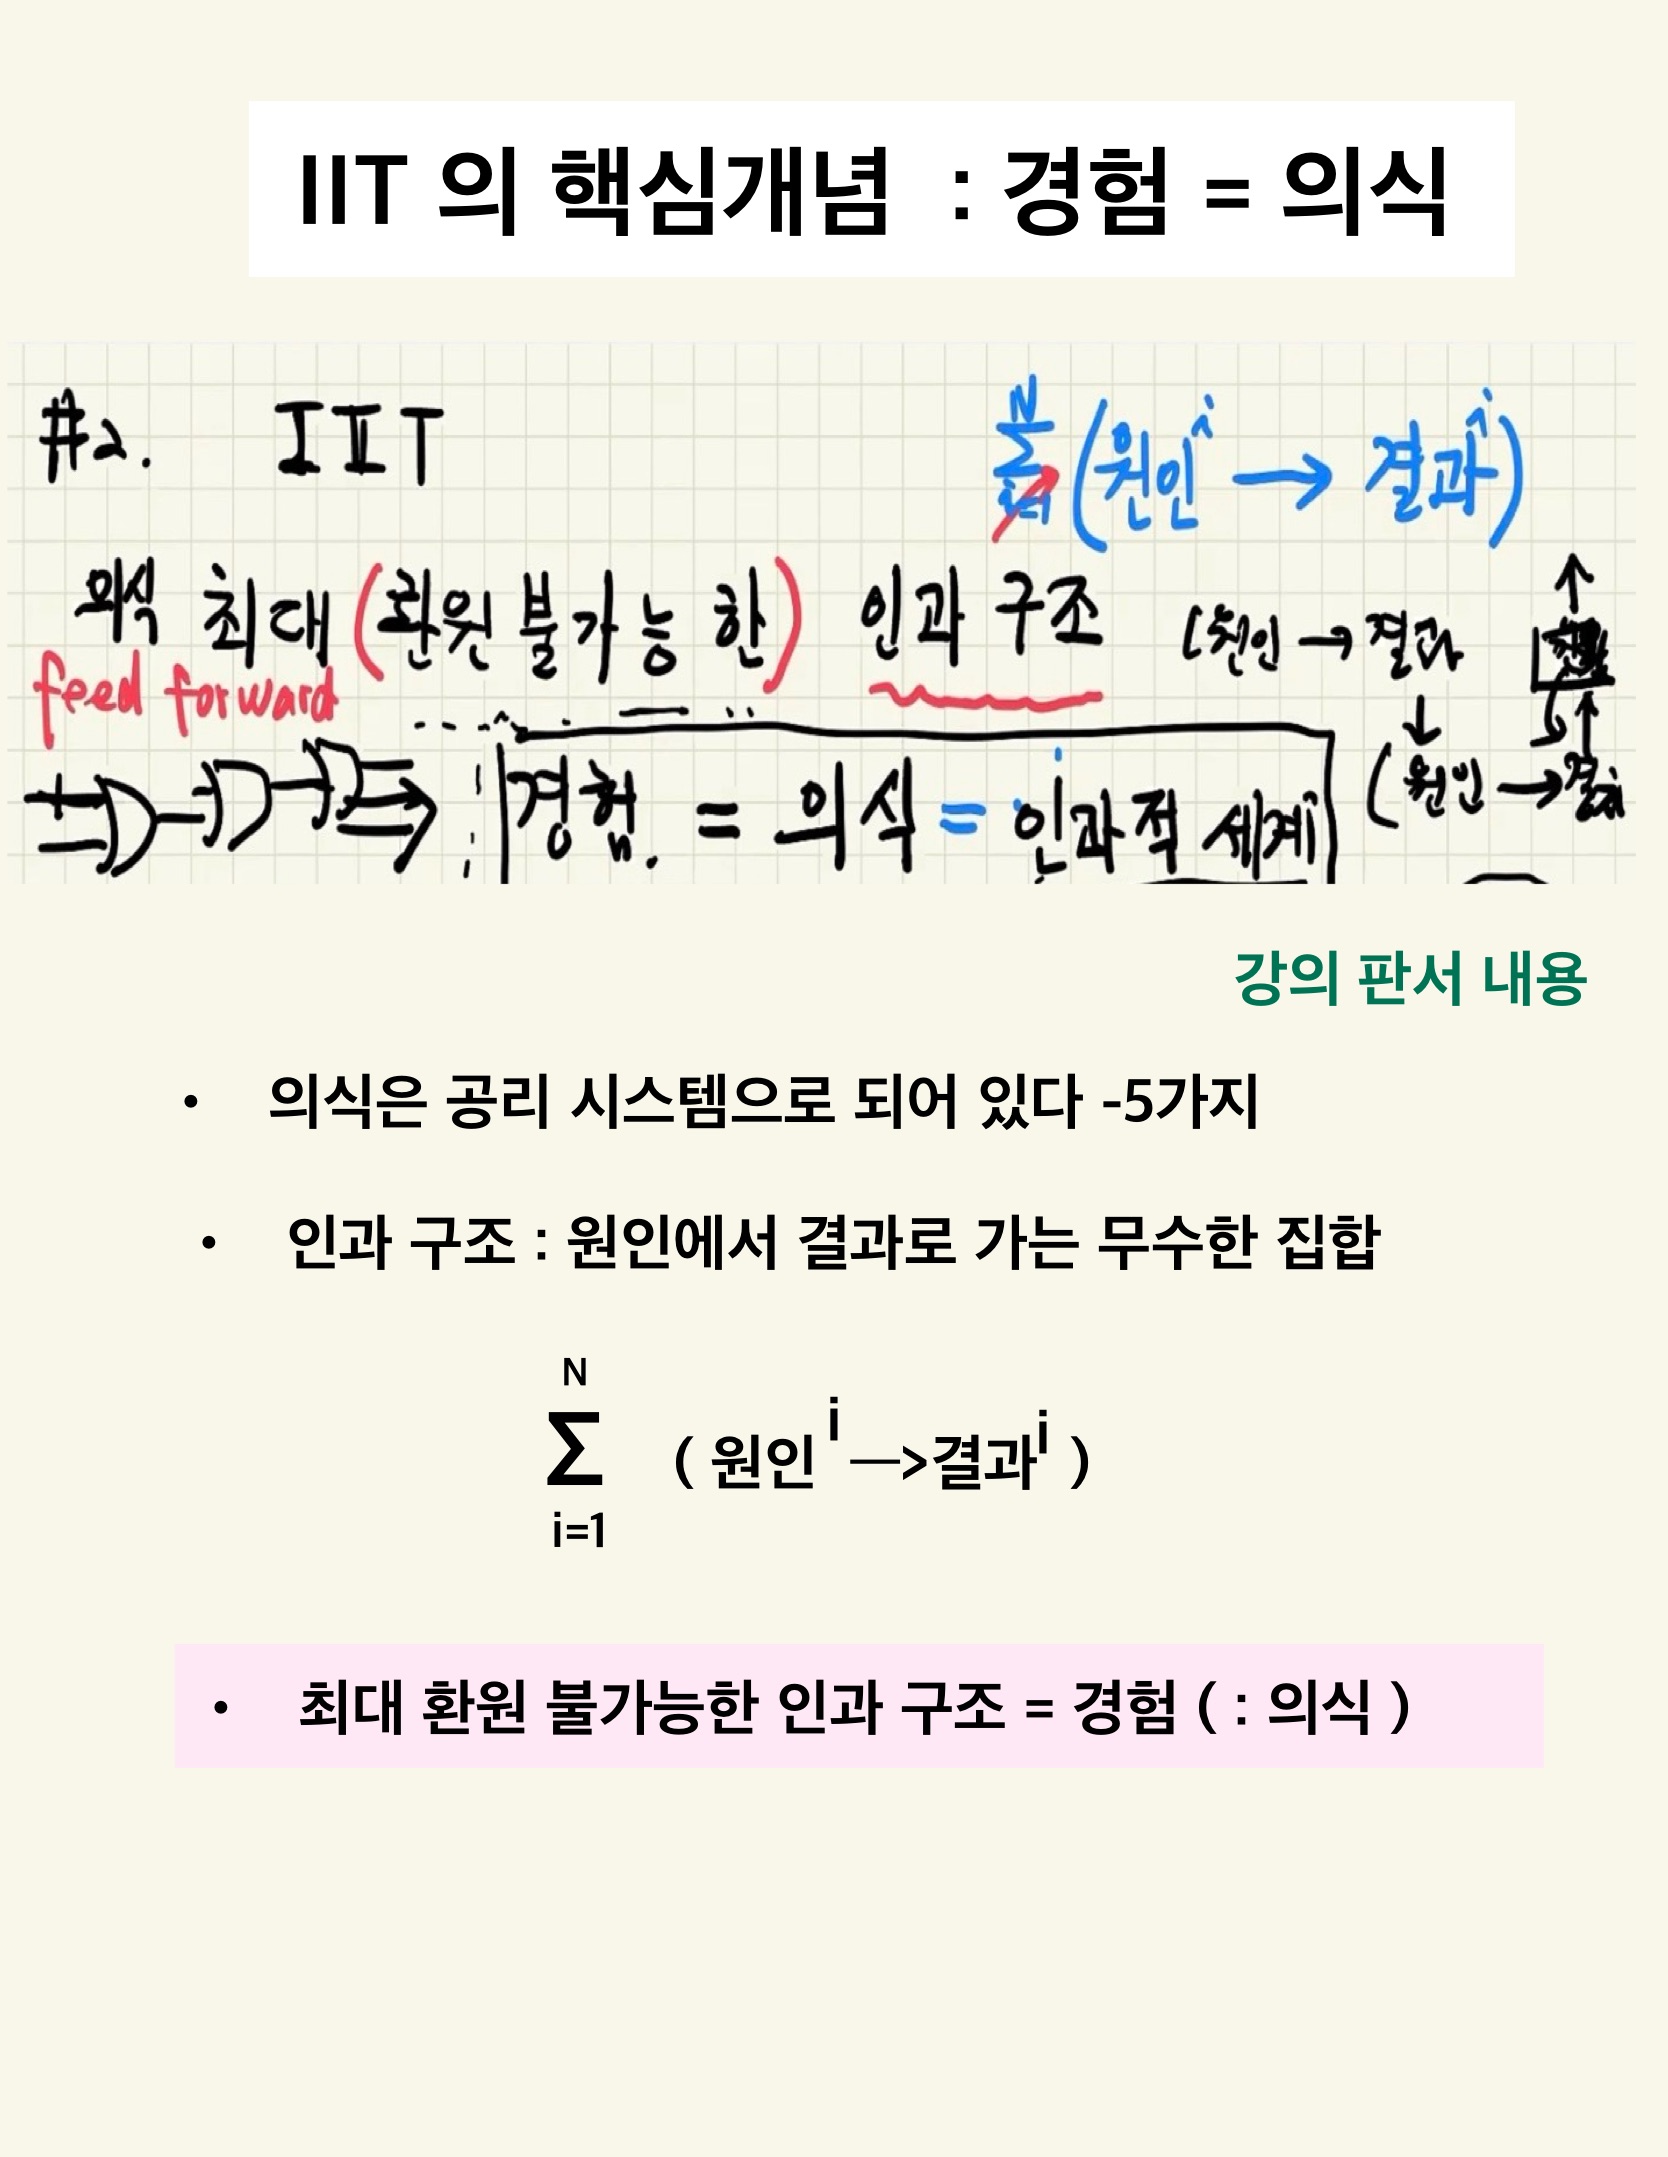 IIT 의 핵심개념 : 경험 = 의식
#2. IIT
N
Σ (원인 i → 결과 i)
i=1
의식 최대 (환원 불가능 한) 인과 구조 (원인 → 결과
feed forward
경험. = 의식 = 인과적 세계
(원인 → 결과
강의 판서 내용
• 의식은 공리 시스템으로 되어 있다 -5가지
• 인과 구조 : 원인에서 결과로 가는 무수한 집합
N
Σ ( 원인 i —>결과 i )
i=1
• 최대 환원 불가능한 인과 구조 = 경험 ( : 의식 )